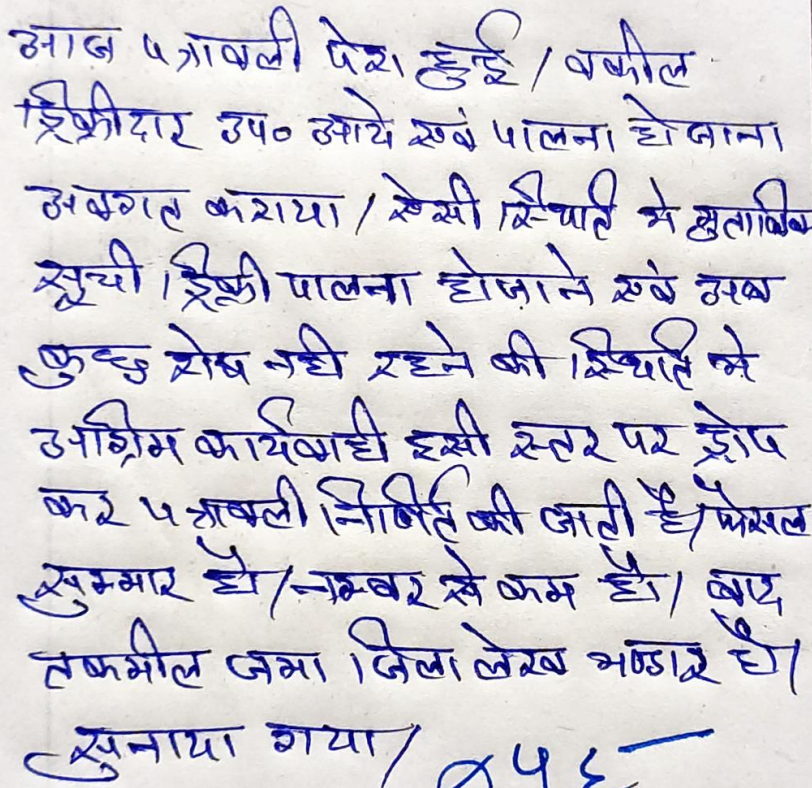 आज पत्रावली पेश हुई / वकील
डिक्रीदार उप० आये एवं पालना होजाना
अवगत कराया / ऐसी स्थिति मे मुताबिक
सूची डिक्री पालना होजाने एवं अब
कुछ शेष नही रहने की स्थिति मे
अग्रिम कार्यवाही इसी स्तर पर ड्रोप
कर पत्रावली निर्णित की जाती है / फैसल
सुम्मार हो / नम्बर से कम हो / बाद
तकमील जमा जिला लेख भण्डार हो /
सुनाया गया /